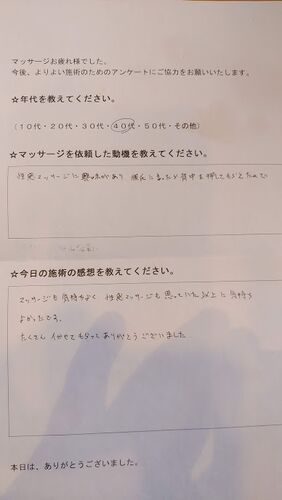 マッサージお疲れ様でした。
今後、よりよい施術のためのアンケートにご協力をお願いいたします。
☆年代を教えてください。
(10代・20代・30代・40代・50代・その他)
☆マッサージを依頼した動機を教えてください。
性感マッサージに興味があり 彼氏に 背中を押してもらえたので
☆今日の施術の感想を教えてください。
マッサージも気持ちよく 性感マッサージも思っていた以上に気持ち
よかったです。
たくさん イかせてもらって ありがとうございました
本日は、ありがとうございました。